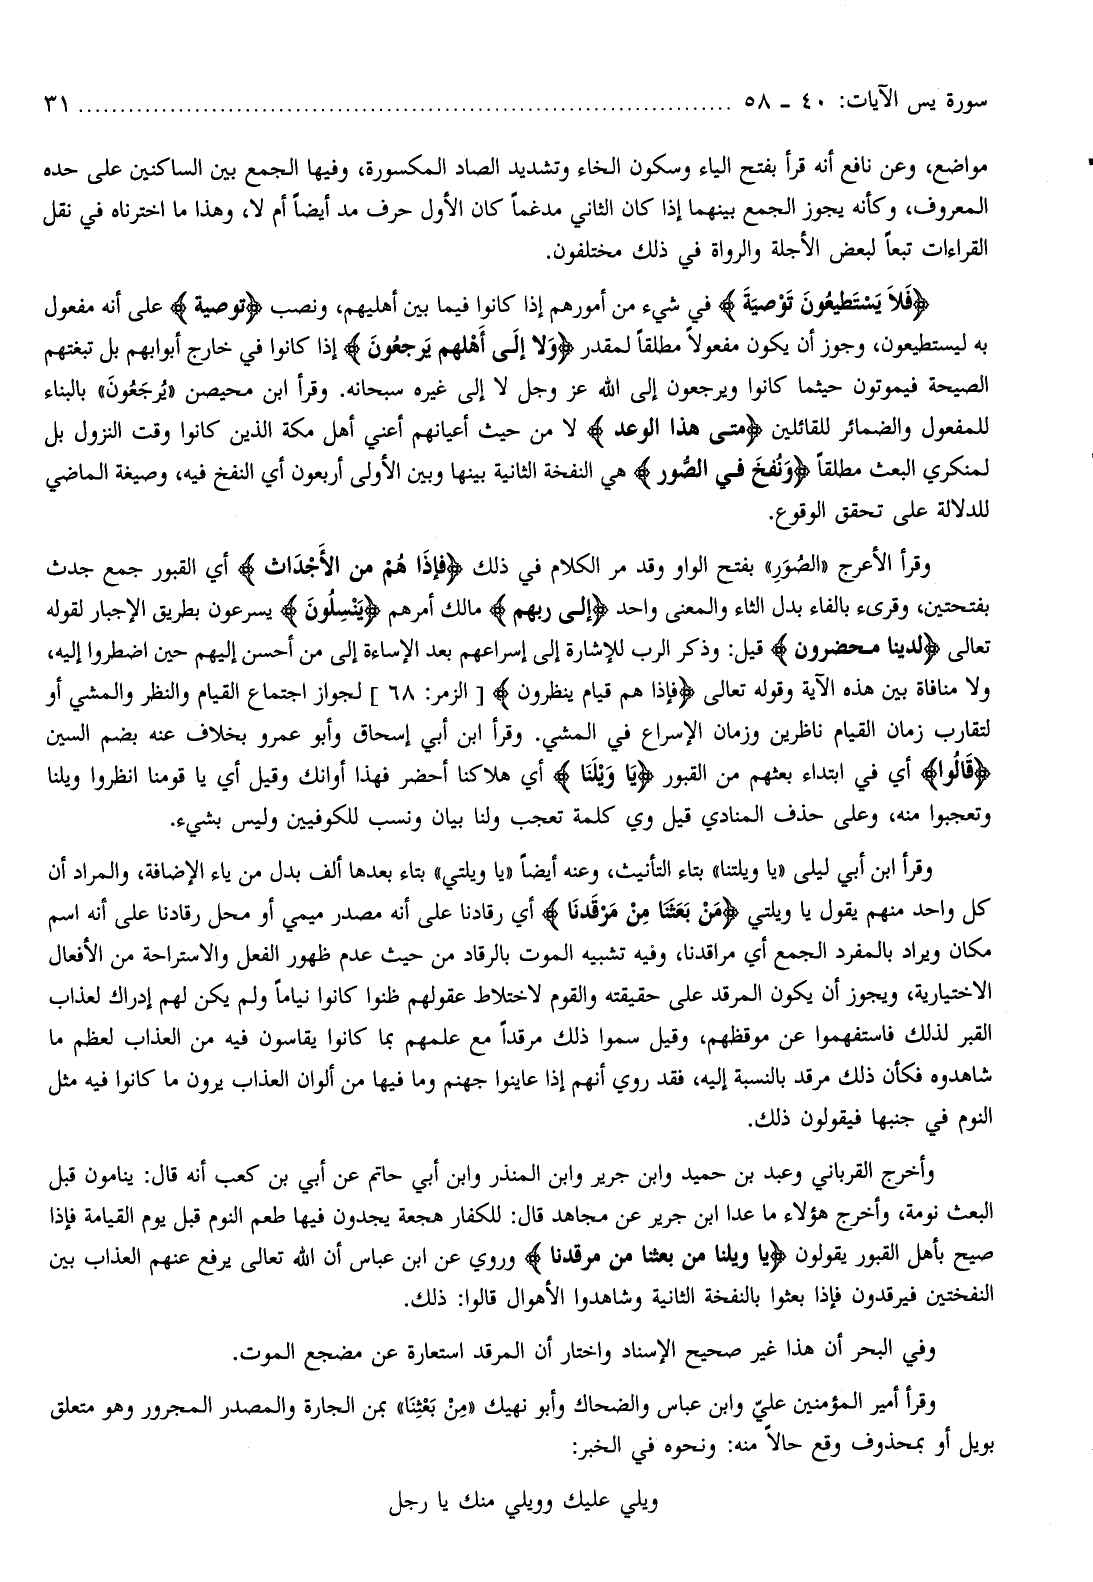 سورة يس الآيات: ٤٠ - ٥٨ ........................................ ٣١
مواضع، وعن نافع أنه قرأ بفتح الياء وسكون الخاء وتشديد الصاد المكسورة، وفيها الجمع بين الساكنين على حده
المعروف، وكأنه يجوز الجمع بينهما إذا كان الثاني مدغماً كان الأول حرف مد أيضاً أم لا، وهذا ما اخترناه في نقل
القراءات تبعاً لبعض الأجلة والرواة في ذلك مختلفون.
﴿فَلاَ يَسْتَطيعُونَ تَوْصيَةً﴾ في شيء من أمورهم إذا كانوا فيما بين أهليهم، ونصب ﴿توصية﴾ على أنه مفعول
به ليستطيعون، وجوز أن يكون مفعولاً مطلقاً لمقدر ﴿وَلا إلَى أَهْلهم يَرجعُونَ﴾ إذا كانوا في خارج أبوابهم بل تبغتهم
الصيحة فيموتون حيثما كانوا ويرجعون إلى الله عز وجل لا إلى غيره سبحانه. وقرأ ابن محيصن «يُرجَعُونَ» بالبناء
للمفعول والضمائر للقائلين ﴿متى هذا الوعد﴾ لا من حيث أعيانهم أعني أهل مكة الذين كانوا وقت النزول بل
لمنكري البعث مطلقاً ﴿وَنُفخَ في الصُّور﴾ هي النفخة الثانية بينها وبين الأولى أربعون أي النفخ فيه، وصيغة الماضي
للدلالة على تحقق الوقوع.
وقرأ الأعرج «الصُوَرِ» بفتح الواو وقد مر الكلام في ذلك ﴿فإذَا هُمْ من الأَجْدَاث﴾ أي القبور جمع جدث
بفتحتين، وقرىء بالفاء بدل الثاء والمعنى واحد ﴿إلى ربهم﴾ مالك أمرهم ﴿يَنْسِلُونَ﴾ يسرعون بطريق الإجبار لقوله
تعالى ﴿لدينا محضرون﴾ قيل: وذكر الرب للإشارة إلى إسراعهم بعد الإساءة إلى من أحسن إليهم حين اضطروا إليه،
ولا منافاة بين هذه الآية وقوله تعالى ﴿فإذا هم قيام ينظرون﴾ [ الزمر: ٦٨ ] لجواز اجتماع القيام والنظر والمشي أو
لتقارب زمان القيام ناظرين وزمان الإسراع في المشي. وقرأ ابن أبي إسحاق وأبو عمرو بخلاف عنه بضم السين
﴿قَالُوا﴾ أي في ابتداء بعثهم من القبور ﴿يَا وَيْلَنَا﴾ أي هلاكنا أحضر فهذا أوانك وقيل أي يا قومنا انظروا ويلنا
وتعجبوا منه، وعلى حذف المنادي قيل وي كلمة تعجب ولنا بيان ونسب للكوفيين وليس بشيء.
وقرأ ابن أبي ليلى «يا ويلتنا» بتاء التأنيث، وعنه أيضاً «يا ويلتي» بتاء بعدها ألف بدل من ياء الإضافة، والمراد أن
كل واحد منهم يقول يا ويلتي ﴿مَنْ بَعَثنَا مِنْ مَرْقَدنَا﴾ أي رقادنا على أنه مصدر ميمي أو محل رقادنا على أنه اسم
مكان ويراد بالمفرد الجمع أي مراقدنا، وفيه تشبيه الموت بالرقاد من حيث عدم ظهور الفعل والاستراحة من الأفعال
الاختيارية، ويجوز أن يكون المرقد على حقيقته والقوم لاختلاط عقولهم ظنوا كانوا نياماً ولم يكن لهم إدراك لعذاب
القبر لذلك فاستفهموا عن موقظهم، وقيل سموا ذلك مرقداً مع علمهم بما كانوا يقاسون فيه من العذاب لعظم ما
شاهدوه فكأن ذلك مرقد بالنسبة إليه، فقد روي أنهم إذا عاينوا جهنم وما فيها من ألوان العذاب يرون ما كانوا فيه مثل
النوم في جنبها فيقولون ذلك.
وأخرج القرباني وعبد بن حميد وابن جرير وابن المنذر وابن أبي حاتم عن أبي بن كعب أنه قال: ينامون قبل
البعث نومة، وأخرج هؤلاء ما عدا ابن جرير عن مجاهد قال: للكفار هجعة يجدون فيها طعم النوم قبل يوم القيامة فإذا
صيح بأهل القبور يقولون ﴿يا ويلنا من بعثنا من مرقدنا﴾ وروي عن ابن عباس أن الله تعالى يرفع عنهم العذاب بين
النفختين فيرقدون فإذا بعثوا بالنفخة الثانية وشاهدوا الأهوال قالوا: ذلك.
وفي البحر أن هذا غير صحيح الإسناد واختار أن المرقد استعارة عن مضجع الموت.
وقرأ أمير المؤمنين عليّ وابن عباس والضحاك وأبو نهيك «مِنْ بَعْثِنَا» بمن الجارة والمصدر المجرور وهو متعلق
بويل أو بمحذوف وقع حالاً منه: ونحوه في الخبر:
ويلي عليك وويلي منك يا رجل